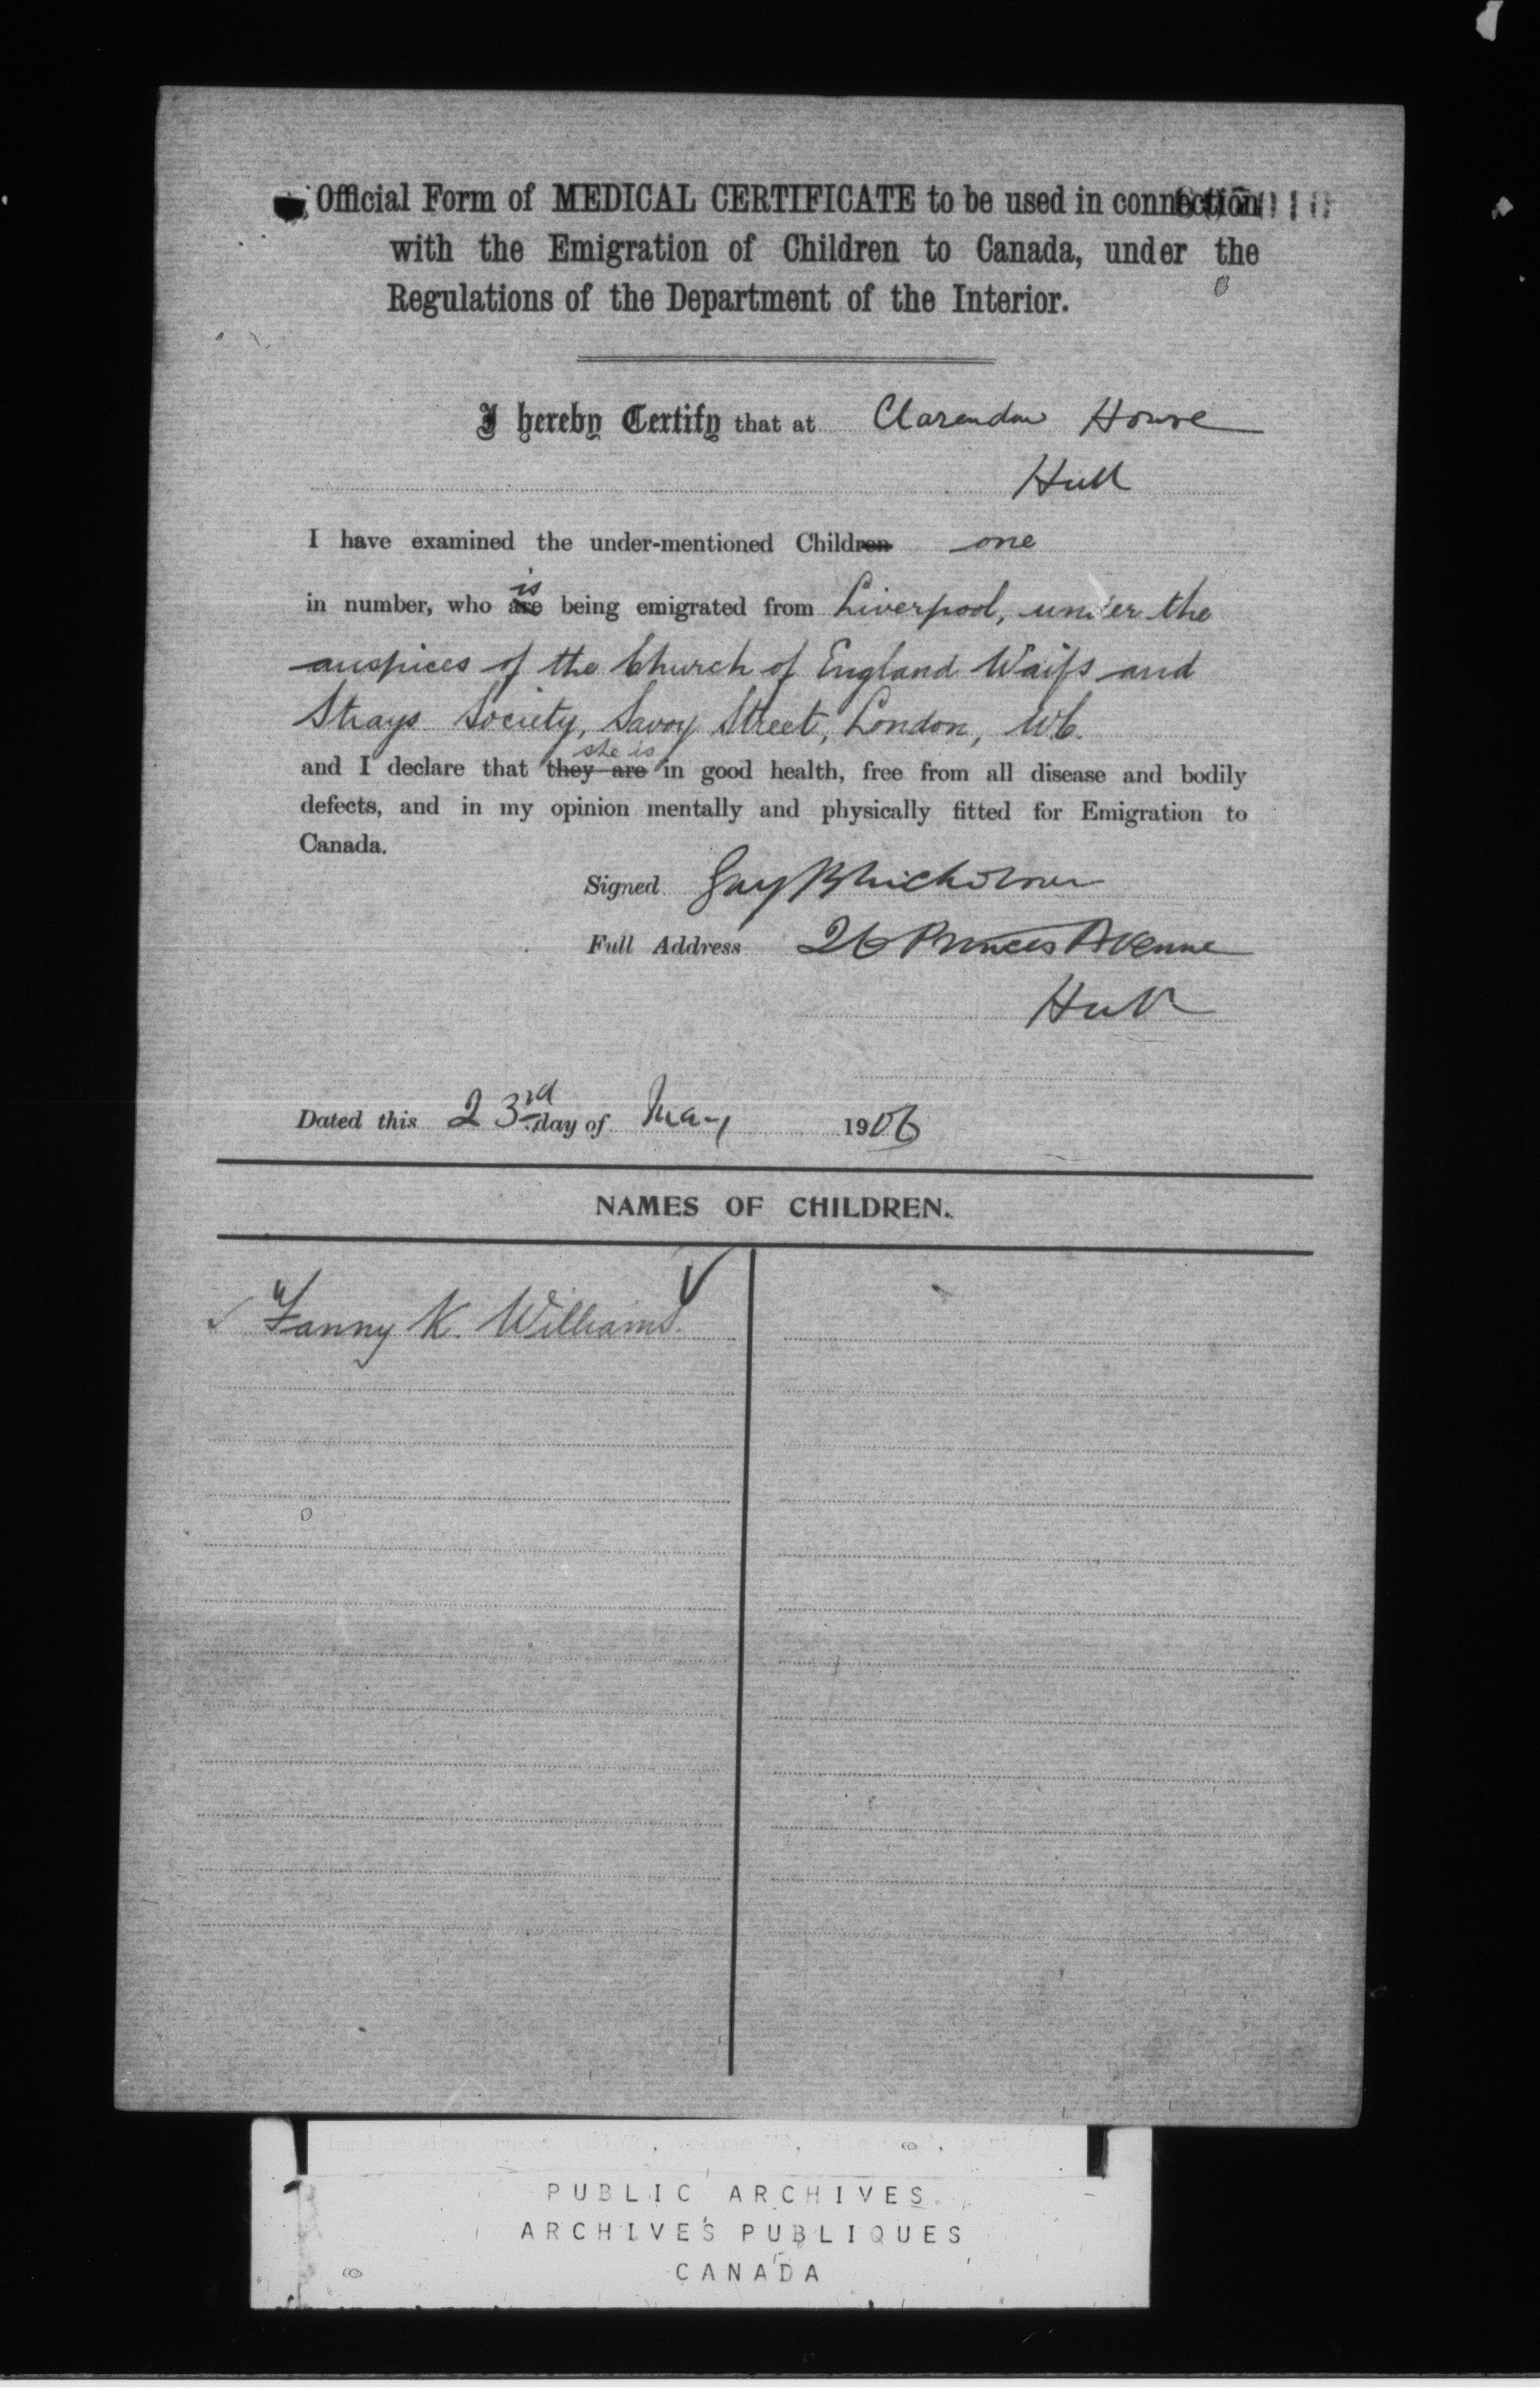 Official Form of MEDICAL CERTIFICATE to be used in connection
with the Emigration of Children to Canada, under the
Regulations of the Department of the Interior.
I hereby Certify that at Clarendon House
Hull
I have examined the under-mentioned Children one
is
in number, who are being emigrated from Liverpool, under the
auspices of the Church of England Waifs and
Strays Society, Savoy Street, London, W.C.
she is
and I declare that they are in good health, free from all disease and bodily
defects, and in my opinion mentally and physically fitted for Emigration to
Canada.
Signed Guy B Nicholson
Full Address 26 Princes Avenue
Hull
Dated this 23rd day of May 1906
NAMES OF CHILDREN.
Fanny K. Williams.
PUBLIC ARCHIVES
ARCHIVES PUBLIQUES
CANADA